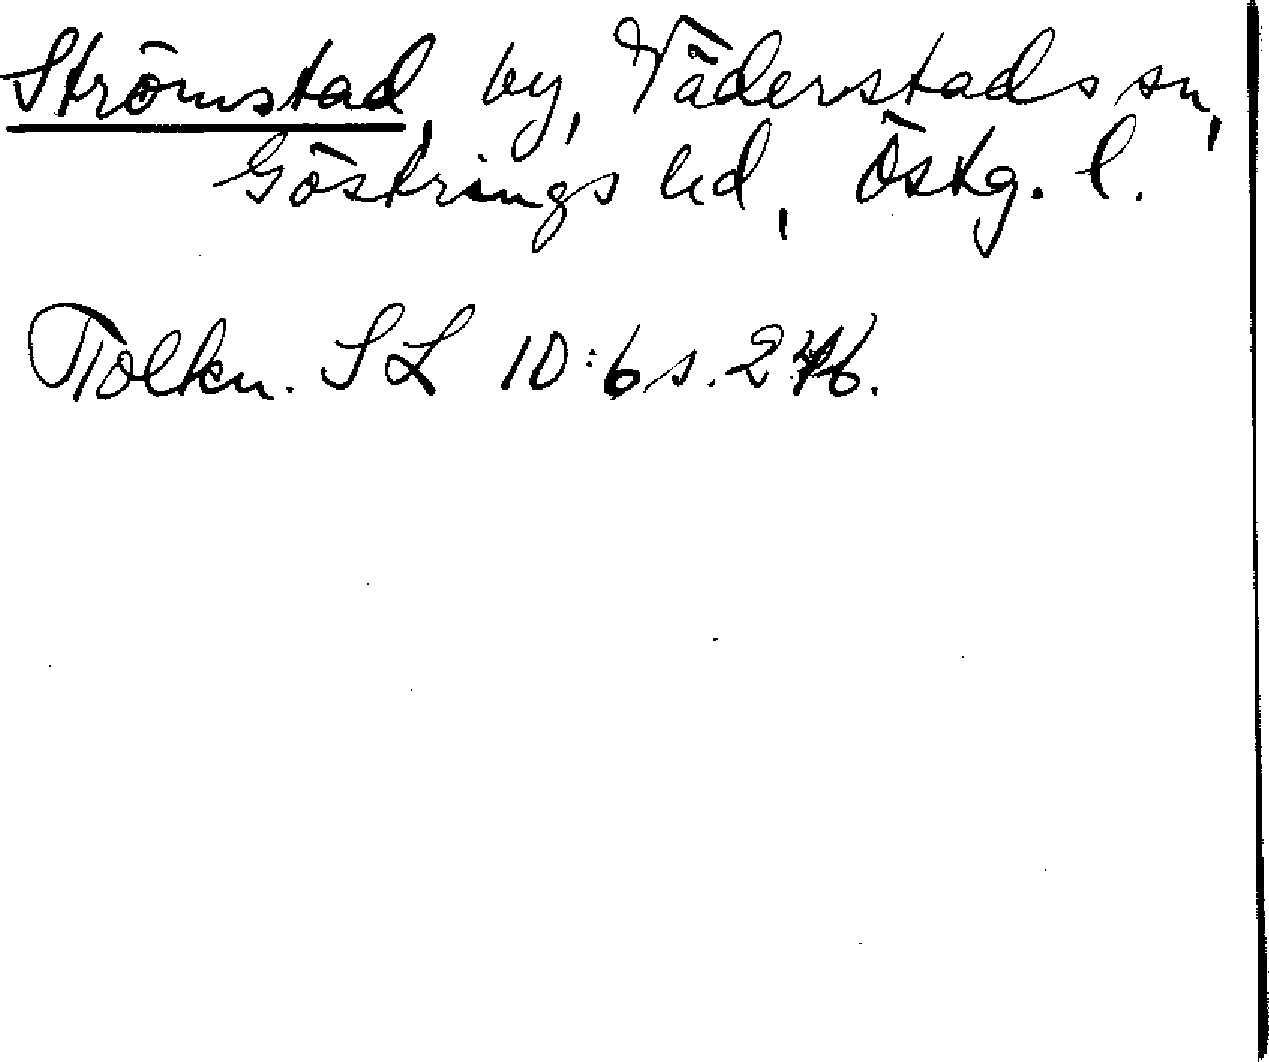 Strömstad, by, Väderstads sn,
Göstrings hd, Östg. l.
Tolkn. SL 10:6 s. 246.